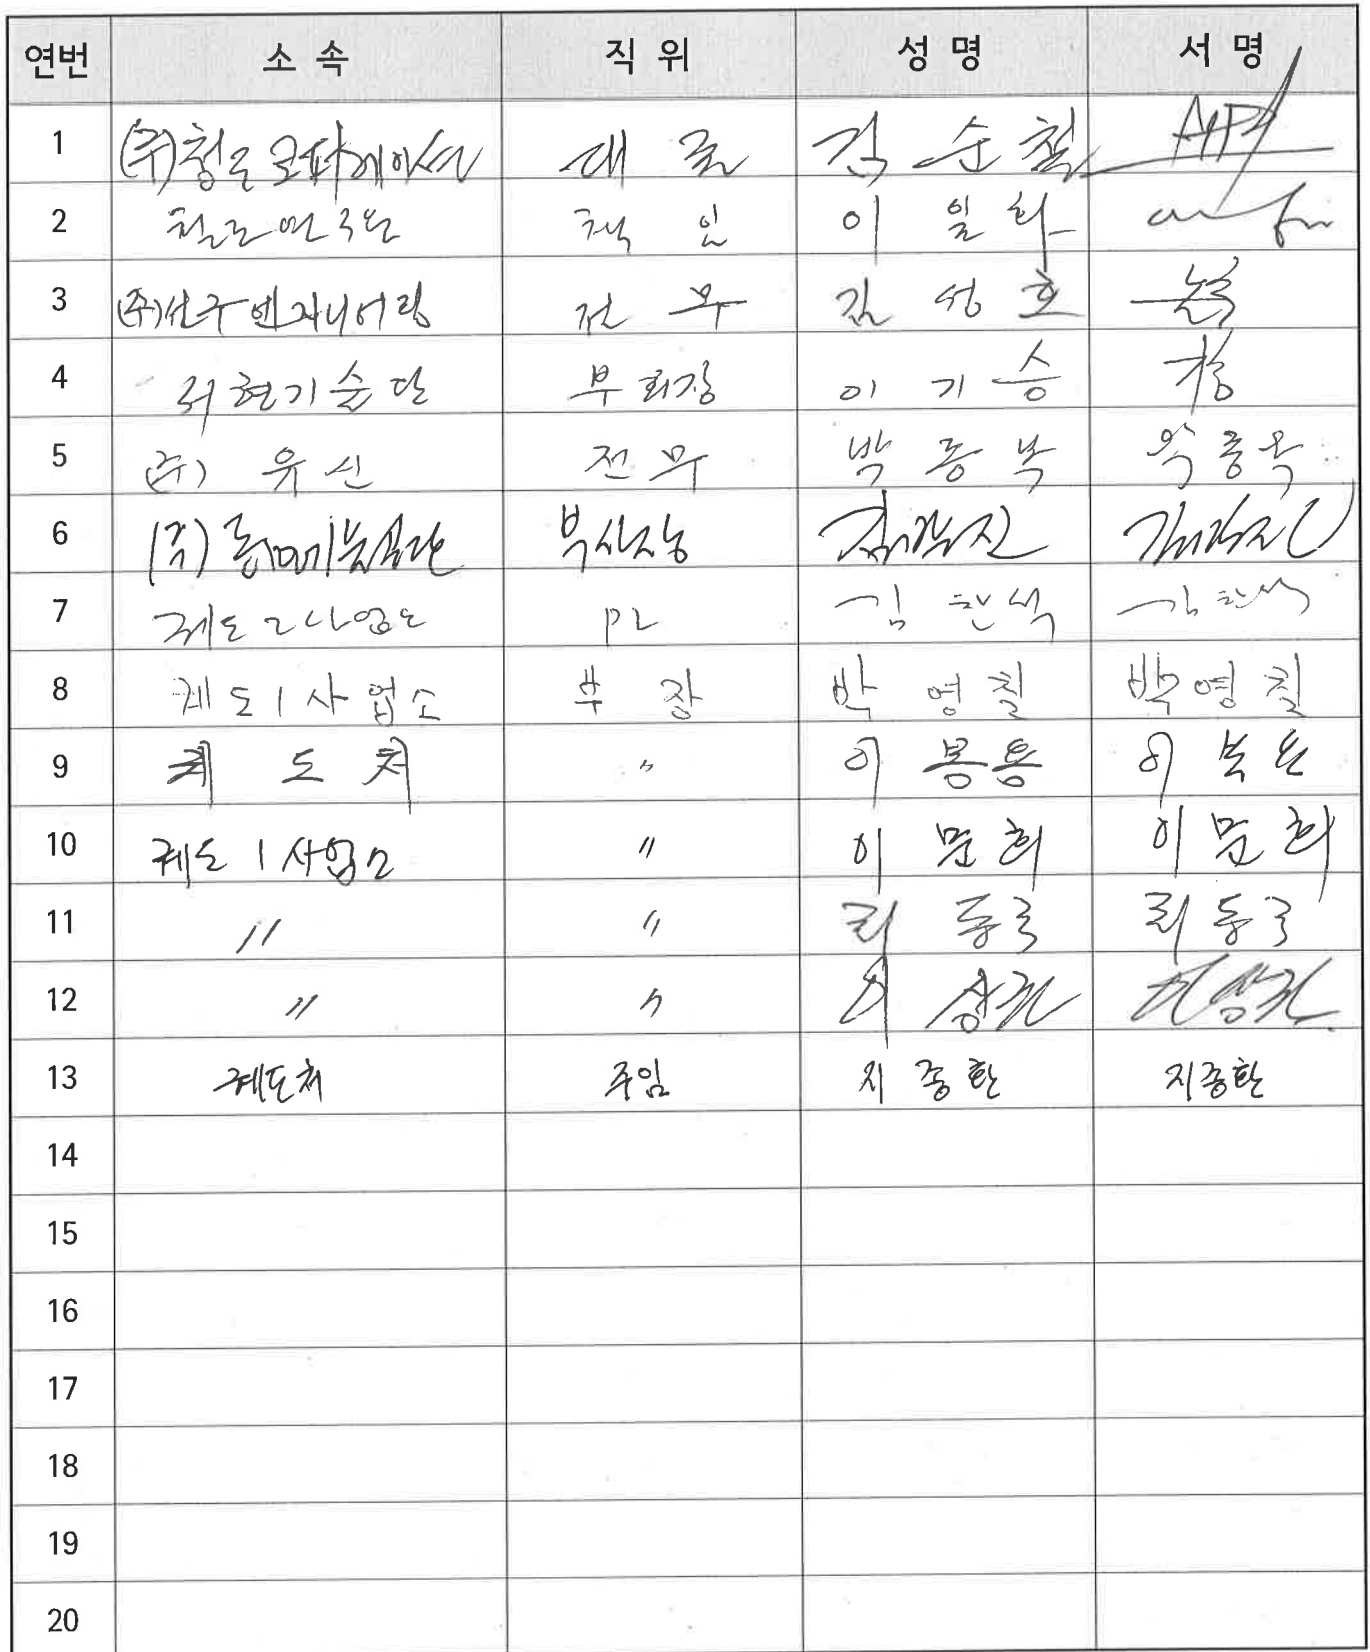 연번 소속 직위 성명 서명
1 (주)청도코퍼레이션 대표 김순철
2 철도연구원 책임 이일화
3 (주)선구엔지니어링 전무 김성호
4 서현기술단 부회장 이기승
5 (주) 유신 전무 박종복
6 (주) 부사장
7 궤도2사업소 PL 김한석 김한석
8 궤도1사업소 부장 박영칠 박영칠
9 궤도처 〃 이봉용
10 궤도1사업소 〃 이문희 이문희
11 〃 〃 최동국 최동국
12 〃 〃 이상권 이상권
13 궤도처 주임 지종환 지종환
14
15
16
17
18
19
20